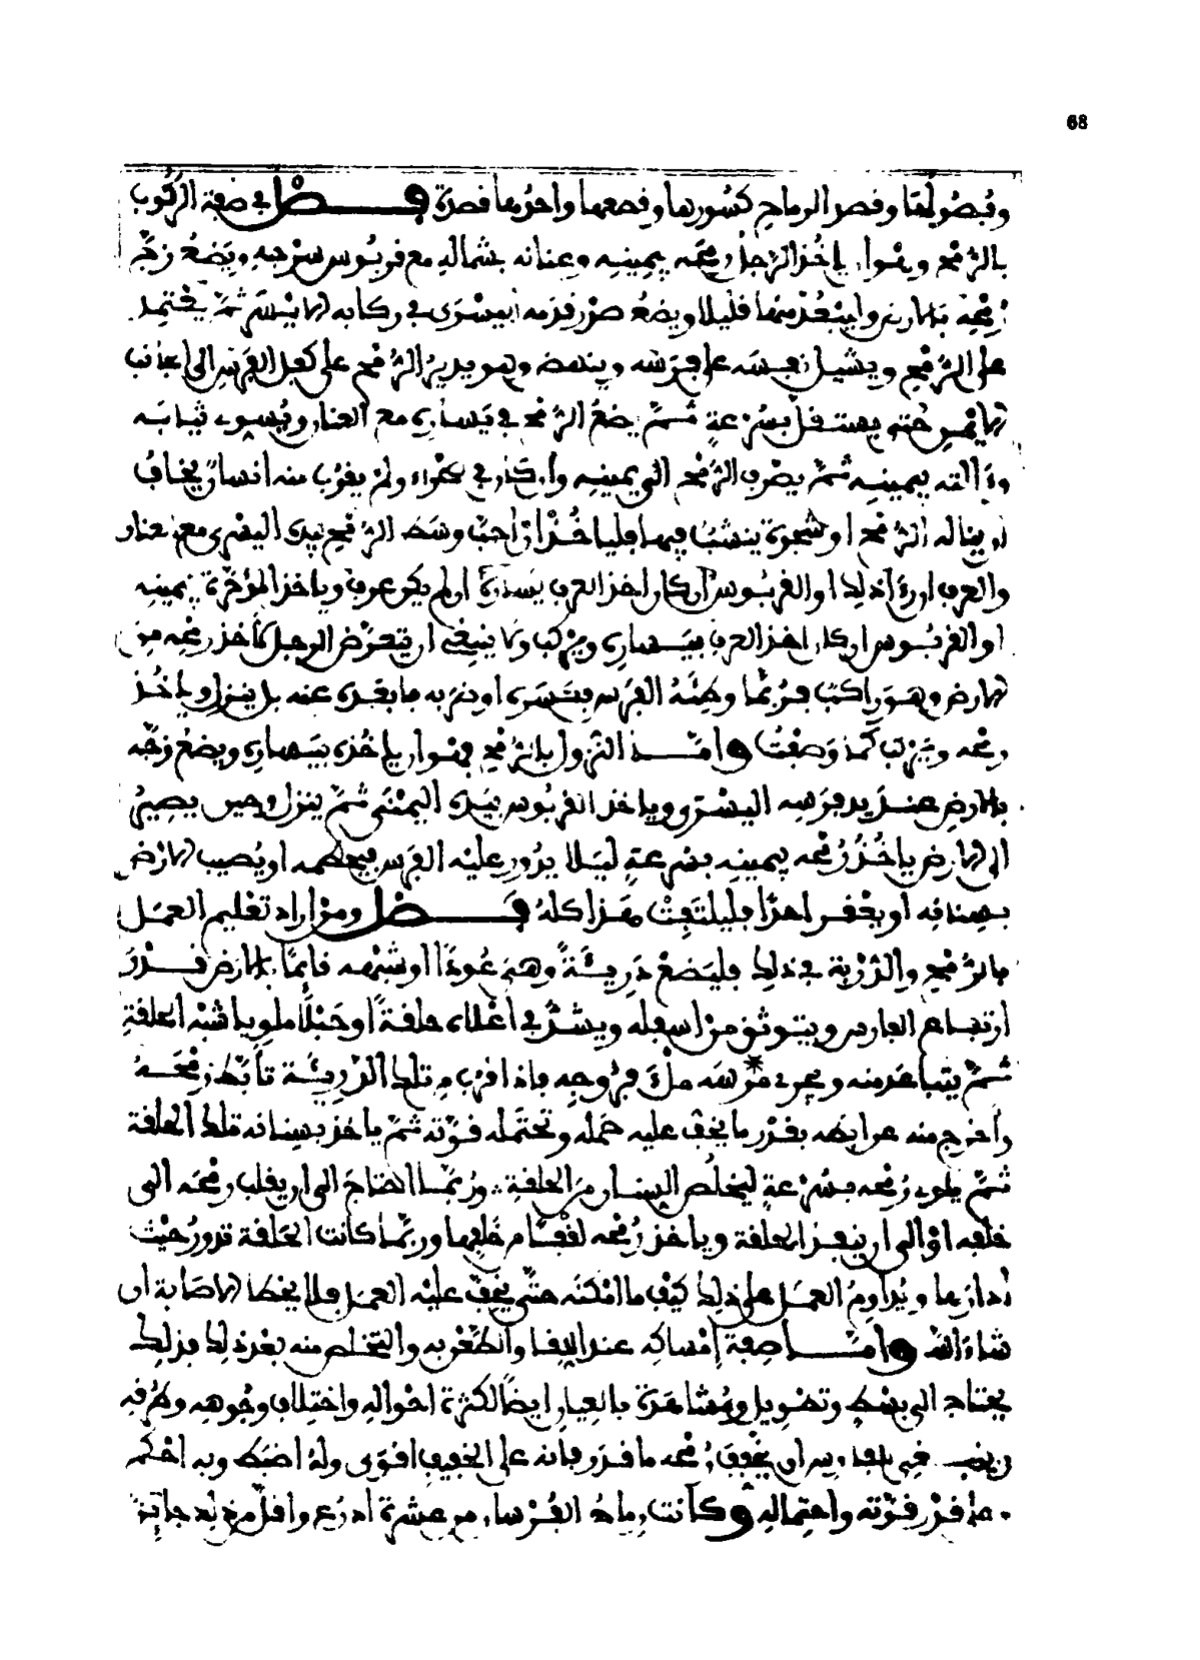 68
وفصولها وقصد الرماح كسورها وقطعها واحدها قصدة فصل في صفة الركوب
بالرمح وهو ان ياخذ الرجل رمحه بيمينه وعنانه بشماله مع قربوس سرجه ويضع زج
رمحه بالارض وليبعد منها قليلا ويضع صدر قدمه اليسرى في ركابه الايسر ثم يعتمد
على الرمح ويشيل نفسه على فرسه وينهض وهو يدير الرمح على كفل الفرس الى الجانب
الايمن حتى يستقل بسرعة ثم يضع الرمح في يساره مع العنان ويسوي ثيابه
والته بيمينه ثم يصرف الرمح الى يمينه وان كان في عسكر ولم يقرب منه انسان يخاف
ان يناله الرمح او شجرة ينشب فيها فلياخذ ان احب وسط الرمح بيده اليسرى مع العنان
والعرف ان اراد ذلك او القربوس ان كان اخذ العرف يساره ان لم يكن عرف وياخذ المؤخرة بيمينه
او القربوس ان كان اخذ العرف بيساره ويركب ولا ينبغي ان يتعرض الرجل لاخذ رمحه من
الارض وهو راكب فربما وطئه الفرس فكسره او نزل به ما يقدره عنه بل ينزل وياخذ
رمحه ويركب كما وصفت واما النزول بالرمح فهو ان ياخذه بيساره ويضع زجه
بالارض عند يد فرسه اليسرى وياخذ القربوس بيده اليمنى ثم ينزل وحين يصير
الى الارض ياخذ رمحه بيمينه بسرعة ليلا يدور عليه الفرس فيحطمه او يصيب الارض
بسنانه او يعقر احدا فليلتفت هذا كله فصل ومن اراد تعليم العمل
بالرمح والدربة في ذلك فليضع دريئة وهي عودا او شبهه قائما بالارض قدر
ارتفاع الفارس ويتوثق من اسفله ويشد في اعلاه حلقة او حبلا ملويا شبه الحلقة
ثم يتباعد منه ويجري فرسه ملء فروجه فاذا قرب من تلك الدريئة تابط رمحه
واخرج منه عن ابطه بقدر ما يخف عليه حمله وتحتمله قوته ثم ياخذ بسنانه تلك الحلقة
ثم يلوي رمحه بسرعة ليخلص السنان من الحلقة وربما احتاج الى ان يقلب رمحه الى
خلفه او الى ان ينفذ الحلقة وياخذ رمحه لقفا من خلفها وربما كانت الحلقة تدور حيث
ادارها ويداوم العمل على ذلك كيف ما امكنه حتى يخف عليه العمل فلا يخطا الاصابة ان
شاء الله واما صفة امساكه عند اللقا والطعن به والتخلص منه بعد ذلك فذلك
يحتاج الى بسط وتطويل ومشاهدة بالعيان ايضا لكثرة احواله واختلاف وجوهه وطرقه
وينبغي للفارس ان يخفف رمحه ما قدر فانه على الخفيف اقوى وله اضبط وبه احكم
على قدر قوته واحتماله وكانت رماح الفرسان من عشرة اذرع واقل من ذلك جائز